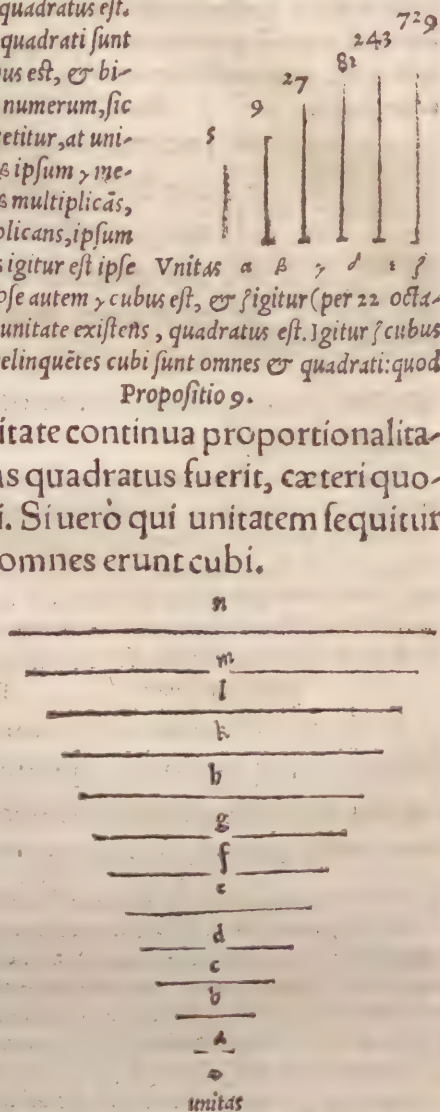 quadratus eſt.
quadrati ſunt
us eſt, & bi-
numerum, ſic
etitur, at uni-
β ipſum γ me-
s multiplicās,
plicans, ipſum
s igitur eſt ipſe
729
243
81
27
9
Vnitas α β γ δ ε ζ
pſe autem γ cubus eſt, & ζ igitur (per 22 octa-
unitate exiſtens, quadratus eſt. Igitur ζ cubus
elinquētes cubi ſunt omnes & quadrati: quod
Propoſitio 9.
itate continua proportionalita-
ns quadratus fuerit, cæteri quo-
i. Si uerò qui unitatem ſequitur
omnes erunt cubi.
n
m
l
k
h
g
f
e
d
c
b
a
unitas